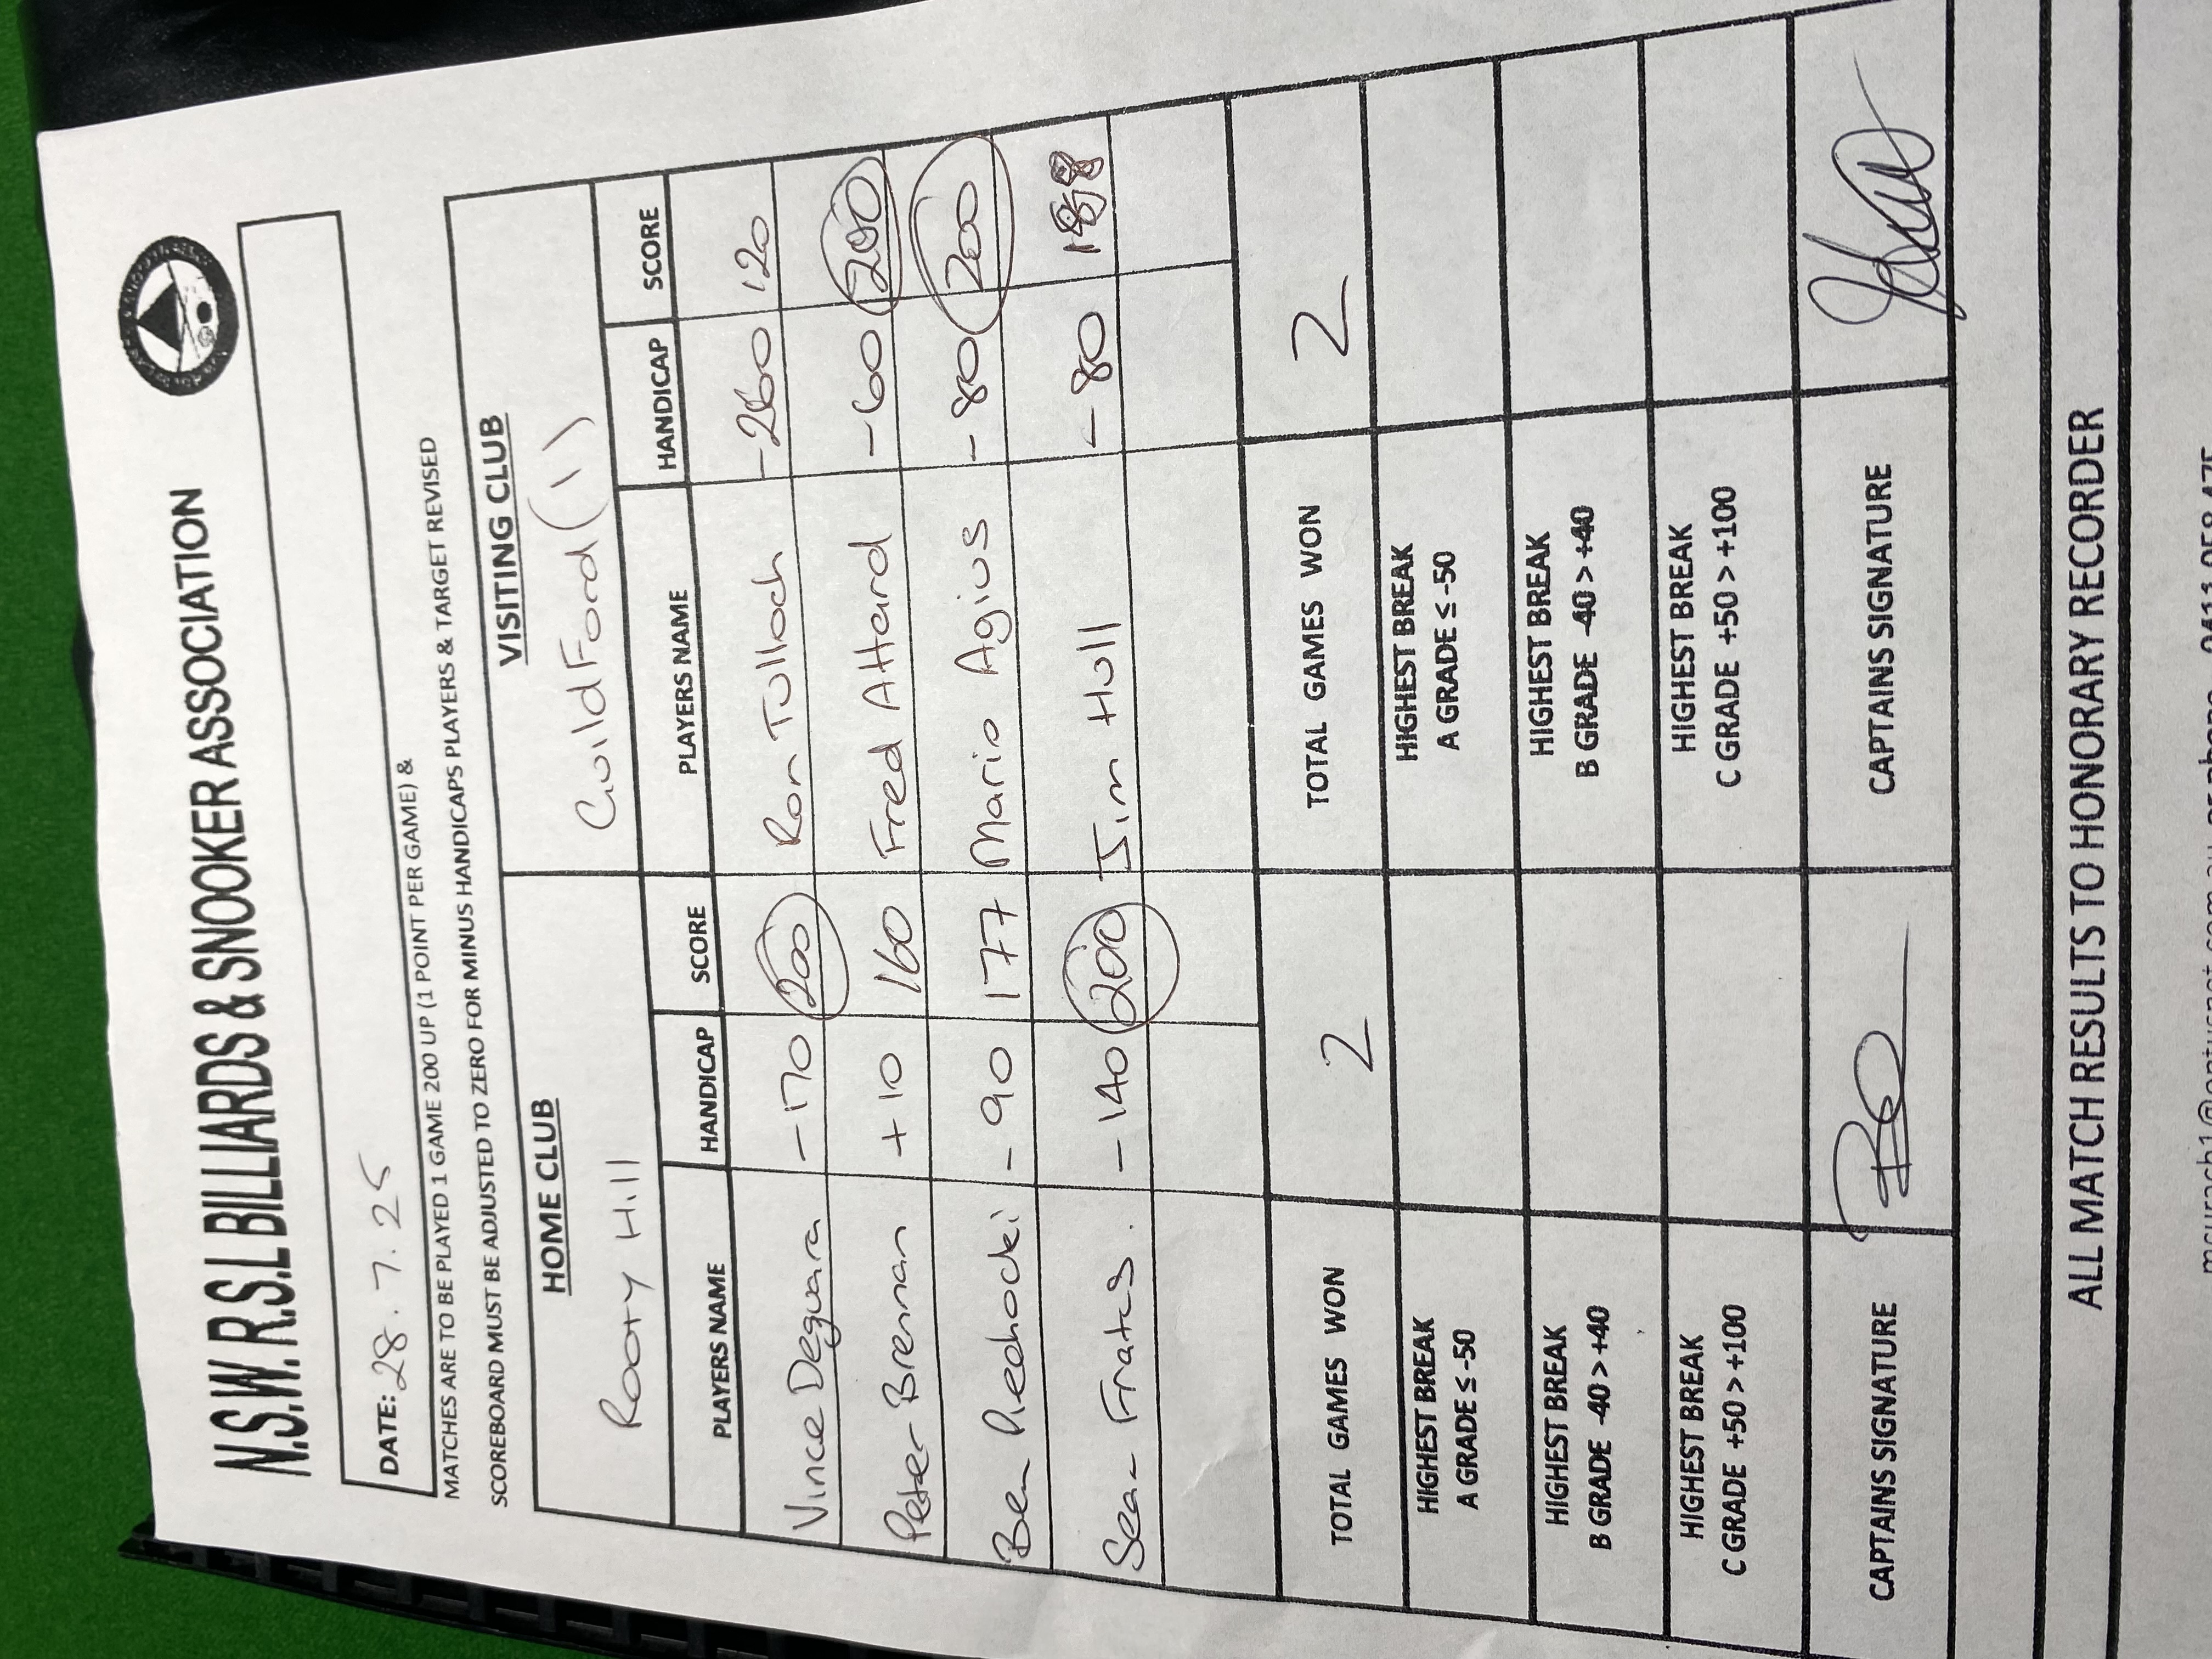 N.S.W. R.S.L BILLIARDS & SNOOKER ASSOCIATION
DATE: 28.7.25
MATCHES ARE TO BE PLAYED 1 GAME 200 UP (1 POINT PER GAME) &
SCOREBOARD MUST BE ADJUSTED TO ZERO FOR MINUS HANDICAPS PLAYERS & TARGET REVISED
HOME CLUB VISITING CLUB
Rooty Hill GuildFord (1)
PLAYERS NAME HANDICAP SCORE PLAYERS NAME HANDICAP SCORE
Vince Deguara -170 200 Ron Tulloch -260 120
Peter Brennan +10 160 Fred Attard -60 200
Ben -90 177 Mario Agius -80 200
Sean Fratus. -140 200 Jim Hull -80
TOTAL GAMES WON 2 TOTAL GAMES WON 2
HIGHEST BREAK HIGHEST BREAK
A GRADE ≤ -50 A GRADE ≤ -50
HIGHEST BREAK HIGHEST BREAK
B GRADE -40 > +40 B GRADE -40 > +40
HIGHEST BREAK HIGHEST BREAK
C GRADE +50 > +100 C GRADE +50 > +100
CAPTAINS SIGNATURE CAPTAINS SIGNATURE
ALL MATCH RESULTS TO HONORARY RECORDER